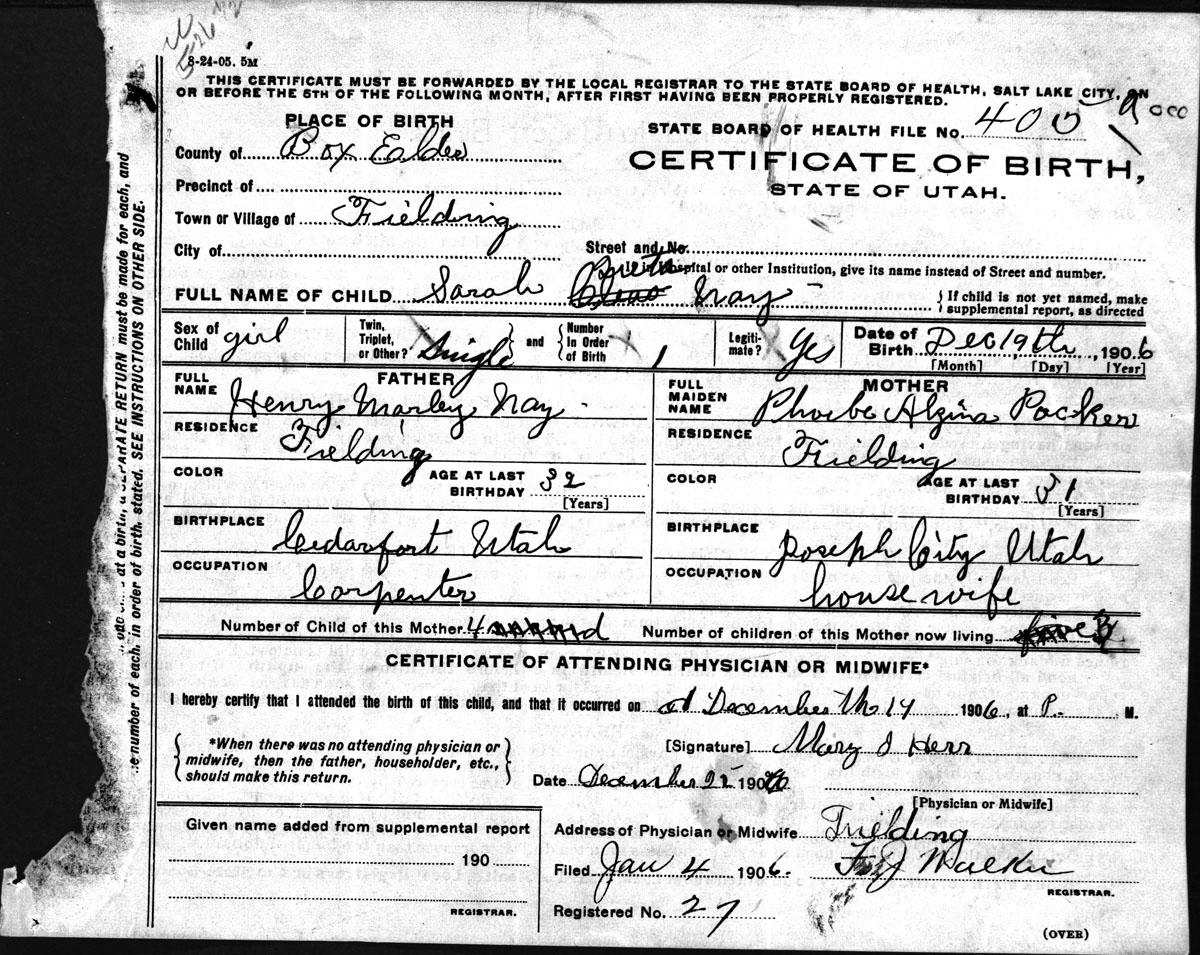 8-24-05. 5M
THIS CERTIFICATE MUST BE FORWARDED BY THE LOCAL REGISTRAR TO THE STATE BOARD OF HEALTH, SALT LAKE CITY, ON
OR BEFORE THE 5TH OF THE FOLLOWING MONTH, AFTER FIRST HAVING BEEN PROPERLY REGISTERED.
PLACE OF BIRTH
STATE BOARD OF HEALTH FILE No. 400
County of Box Ealder
CERTIFICATE OF BIRTH,
STATE OF UTAH.
Precinct of
Town or Village of Fielding
City of
Street and No.
If in Hospital or other Institution, give its name instead of Street and number.
FULL NAME OF CHILD Sarah Nay
{ If child is not yet named, make supplemental report, as directed
Sex of Child girl
Twin, Triplet, or Other? Single } and { Number In Order of Birth 1
Legitimate? Yes
Date of Birth Dec 19th, 1906
[Month] [Day] [Year]
FATHER
FULL NAME Henry Morley Nay
RESIDENCE Fielding
COLOR
AGE AT LAST BIRTHDAY 32
[Years]
BIRTHPLACE Cedarfort Utah
OCCUPATION Carpenter
MOTHER
FULL MAIDEN NAME Phoebe Alzina Packer
RESIDENCE Fielding
COLOR
AGE AT LAST BIRTHDAY 31
[Years]
BIRTHPLACE Joseph City Utah
OCCUPATION house wife
Number of Child of this Mother 4
Number of children of this Mother now living
CERTIFICATE OF ATTENDING PHYSICIAN OR MIDWIFE*
I hereby certify that I attended the birth of this child, and that it occurred on December 1906, at P. M.
{ *When there was no attending physician or midwife, then the father, householder, etc., should make this return. }
[Signature] Mary Herr
Date December 190
[Physician or Midwife]
Given name added from supplemental report
190
REGISTRAR.
Address of Physician or Midwife Fielding
Filed Jan 4 1906.
REGISTRAR.
Registered No. 27
(OVER)
at a birth, a SEPARATE RETURN must be made for each, and
the number of each, in order of birth, stated. SEE INSTRUCTIONS ON OTHER SIDE.